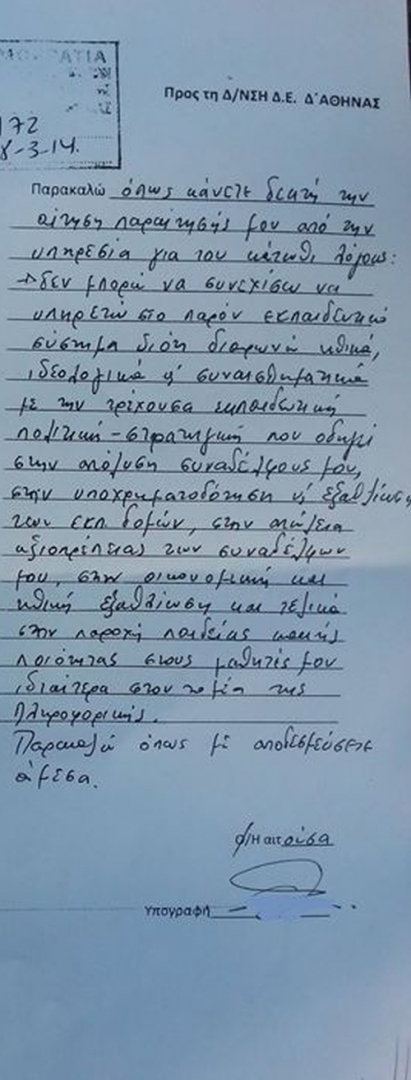 ΑΤΙΑ
172
8-3-14.
Προς τη Δ/ΝΣΗ Δ.Ε. Δ΄ΑΘΗΝΑΣ
Παρακαλώ όπως κάνετε δεκτή την
αίτηση παραίτησής μου από την
υπηρεσία για του κάτωθι λόγους:
→δεν μπορώ να συνεχίσω να
υπηρετώ στο παρόν εκπαιδευτικό
σύστημα διότι διαφωνώ ηθικά,
ιδεολογικά κ' συναισθηματικά
με την τρέχουσα εκπαιδευτική
πολιτική-στρατηγική που οδηγεί
στην απόλυση συναδέλφους μου,
στην υποχρηματοδότηση κ' εξαθλίωση
των εκπ. δομών, στην απώλεια
αξιοπρέπειας των συναδέλφων
μου, στην οικονομική και
ηθική εξαθλίωση και τελικά
στην παροχή παιδείας κακής
ποιότητας στους μαθητές μου
ιδιαίτερα στον τομέα της
Πληροφορικής.
Παρακαλώ όπως με αποδεσμεύσετε
άμεσα.
Ο/Η αιτούσα
Υπογραφή